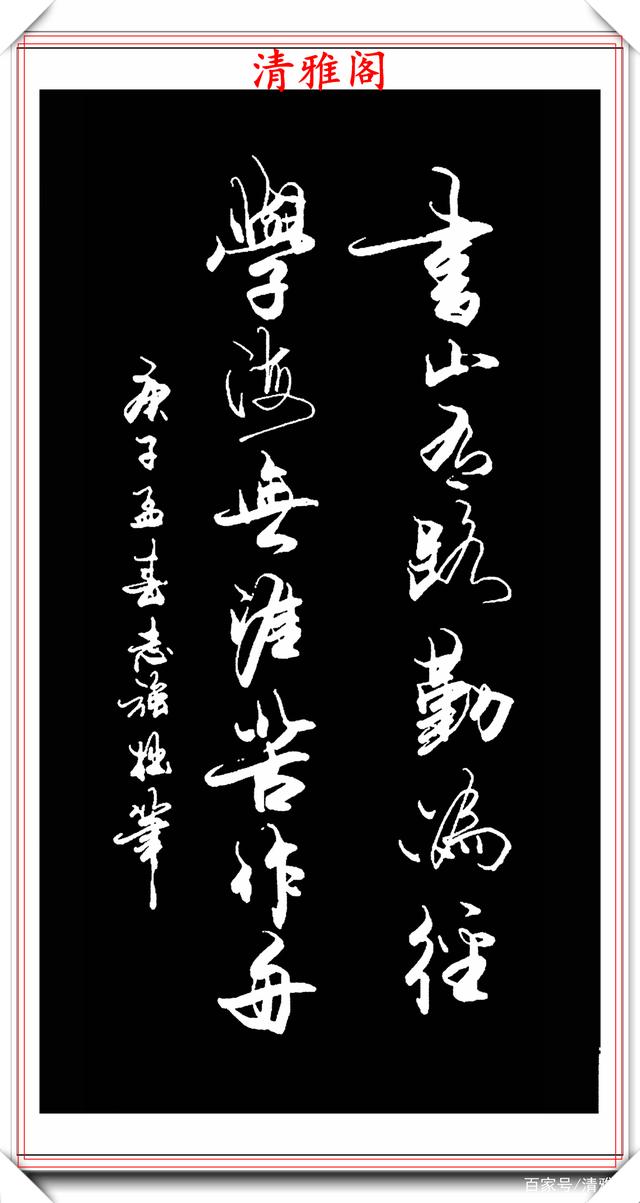 清雅阁
書山有路勤為徑
學海無涯苦作舟
庚子孟春志強拙筆
百家号/清雅